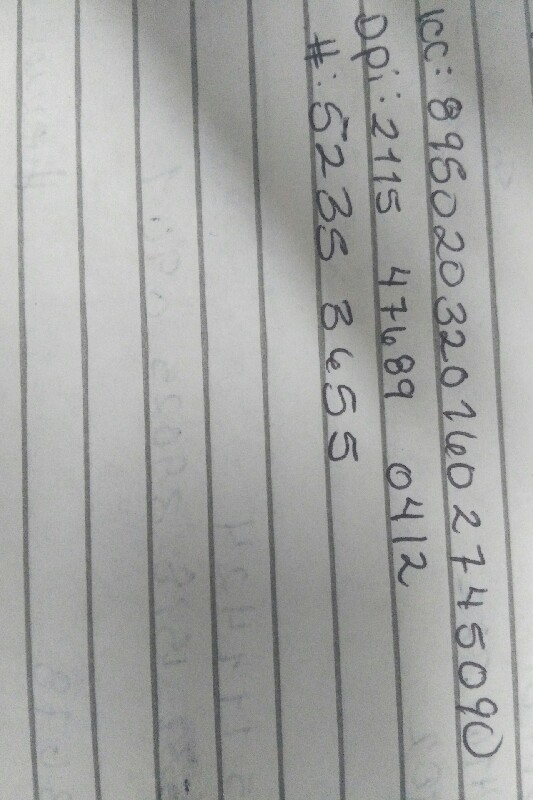 ICC: 8950203201602745090
Dpi: 2115 47689 0412
#: 5235 3655